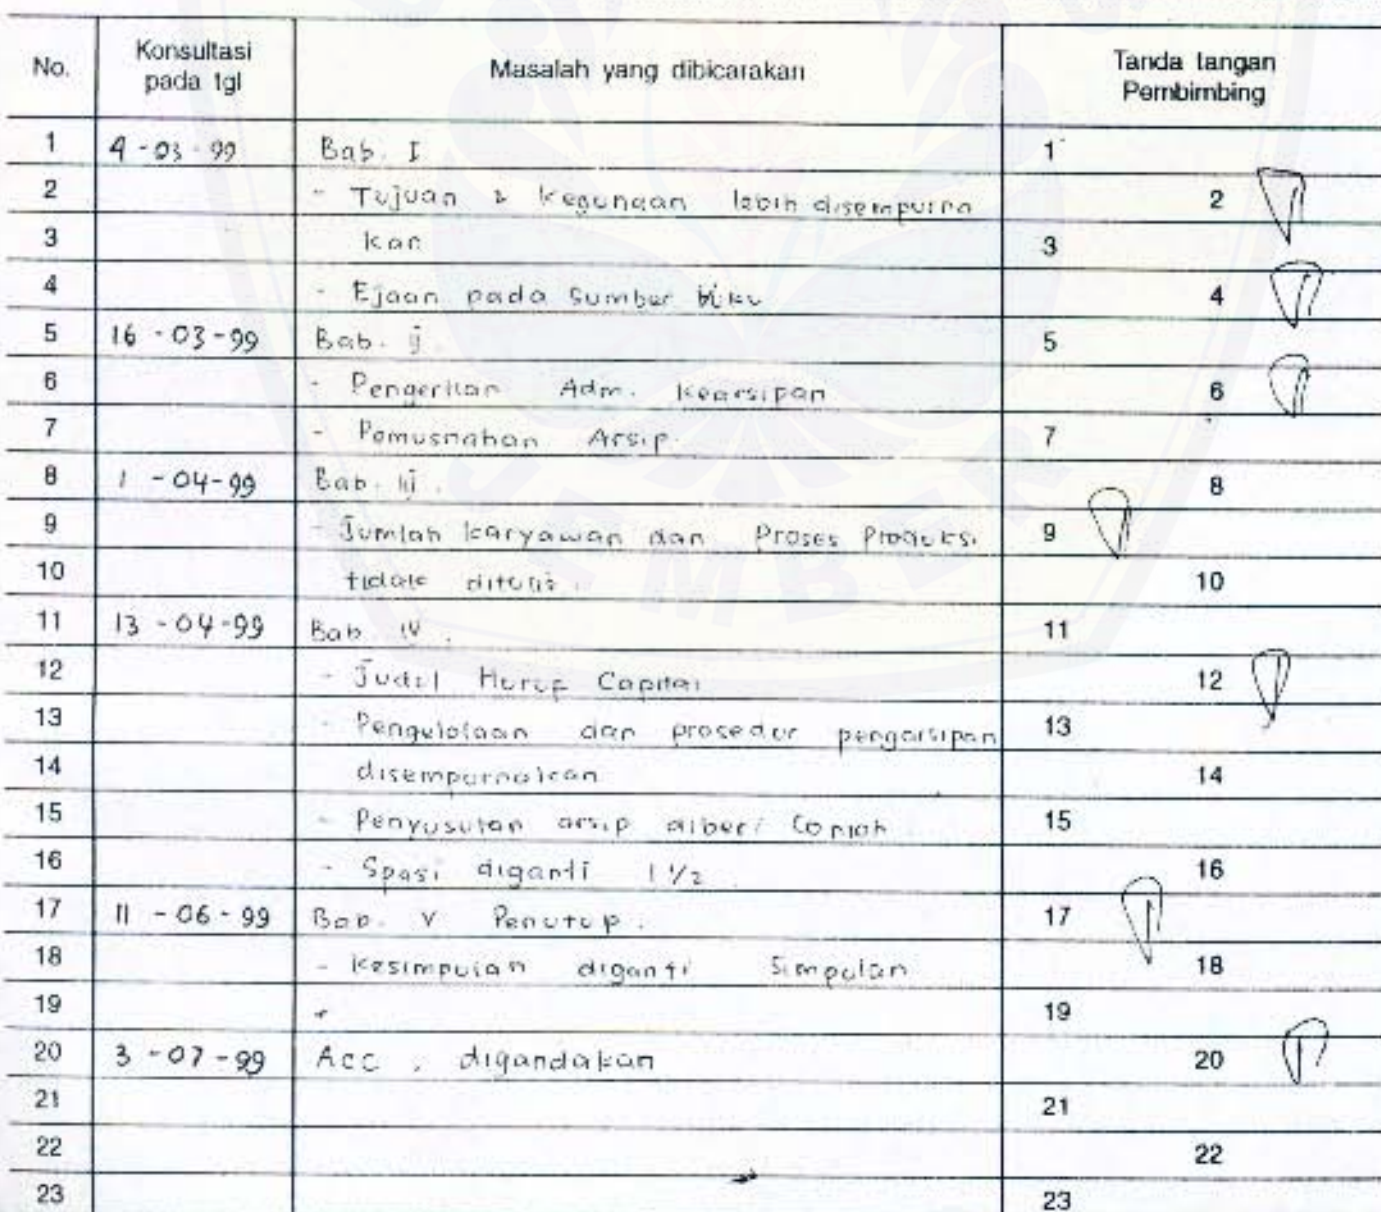 No. Konsultasi pada tgl Masalah yang dibicarakan Tanda tangan Pembimbing
1 9-03-99 Bab. I 1
2 - Tujuan & kegunaan lebih disempurna 2
3 kan 3
4 - Ejaan pada Sumber buku 4
5 16-03-99 Bab. ij 5
6 - Pengertian Adm. kearsipan 6
7 - Pemusnahan Arsip. 7
8 1-04-99 Bab. iij. 8
9 - Jumlah karyawan dan Proses Produksi 9
10 tidak ditulis. 10
11 13-04-99 Bab. IV. 11
12 - Judul Huruf Capital 12
13 - Pengelolaan dan prosedur pengarsipan 13
14 disempurnakan 14
15 - Penyusutan arsip diberi Contoh 15
16 - Spasi diganti 1 1/2 16
17 11-06-99 Bab. V Penutup. 17
18 - kesimpulan diganti Simpulan 18
19 19
20 3-07-99 Acc, digandakan 20
21 21
22 22
23 23
JEMBER